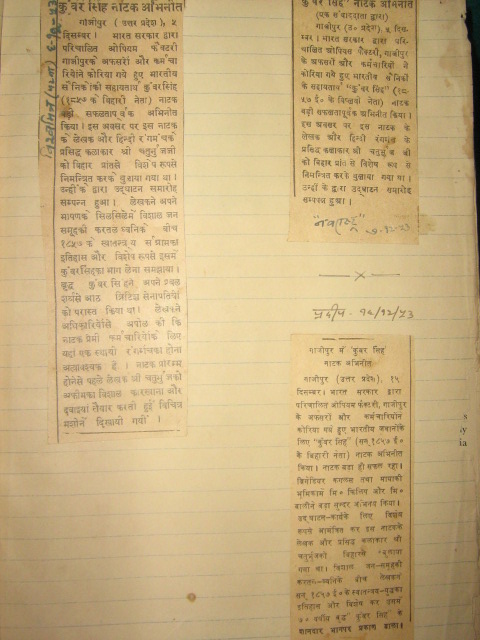 कुंवर सिंह नाटक अभिनीत
गाजीपुर ( उत्तर प्रदेश ), ५
दिसम्बर । भारत सरकार द्वारा
परिचालित ओपियम फैक्टरी
गाजीपुरके अफसरों और कर्मचा
रियोंने कोरिया गये हुए भारतीय
सैनिकोंकी सहायतार्थ कुंवरसिंह
(१८५७ के बिहारी नेता) नाटक
बड़ी सफलतापूर्वक अभिनीत
किया । इस अवसर पर इस नाटक
के लेखक और हिन्दी रंगमंचके
प्रसिद्ध कलाकार श्री चतुर्भुजजी
को बिहार प्रांतसे विशेष रूपसे
निमन्त्रित करके बुलाया गया था ।
उन्हीं के द्वारा उद्घाटन समारोह
सम्पन्न हुआ । लेखकने अपने
भाषणके सिलसिलेमें विशाल जन
समूहकी करतल ध्वनिके बीच
१८५७ के स्वातन्त्र्य संग्रामका
इतिहास और विशेष रूपसे इसमें
कुंवरसिंहका भाग लेना समझाया ।
वृद्ध कुंवर सिंहने, अपने प्रबल
शौर्यसे आठ ब्रिटिश सेनापतियों
को परास्त किया था । लेखकने
अधिकारियोंसे अपील की कि
नाटक प्रेमी कर्मचारियोंके लिए
यहां एक स्थायी रंगमंचका होना
अत्यावश्यक है । नाटक प्रारम्भ
होनेसे पहले लेखक श्री चतुर्भुजको
अफीमका विशाल कारखाना और
दवाइयां तैयार करती हुई विचित्र
मशीनें दिखायी गयीं ।
कुंवर सिंह" नाटक अभिनीत
(एक संवाददाता द्वारा)
गाजीपुर (उ० प्रदेश), ५ दिस-
म्बर । भारत सरकार द्वारा परि-
चालित ओपियम फैक्टरी, गाजीपुर
के अफसरों और कर्मचारियों ने
कोरिया गये हुए भारतीय सैनिकों
के सहायतार्थ "कुंवर सिंह" (१८-
५७ ई० के विप्लवी नेता) नाटक
बड़ी सफलतापूर्वक अभिनीत किया ।
इस अवसर पर इस नाटक के
लेखक और हिन्दी रंगमंच के
प्रसिद्ध कलाकार श्री चतुर्भुज जी
को बिहार प्रांत से विशेष रूप से
निमन्त्रित करके बुलाया गया था ।
उन्हीं के द्वारा उद्घाटन समारोह
सम्पन्न हुआ ।
"नवराष्ट्र"
७-१२-५३
प्रदीप- १८/१२/५३
गाजीपुर में 'कुंवर सिंह'
नाटक अभिनीत
गाजीपुर (उत्तर प्रदेश), १५
दिसम्बर । भारत सरकार द्वारा
परिचालित ओपियम फैक्टरी, गाजीपुर
के अफसरों और कर्मचारियोंने
कोरिया गये हुए भारतीय जवानोंके
लिए "कुंवर सिंह" (सन् १८५७ ई०
के बिहारी नेता) नाटक अभिनीत
किया । नाटक बड़ा ही सफल रहा ।
ब्रिगेडियर कगलस तथा
भूमिकामें मि० फिलिप और मि०
बड़ा सुन्दर अभिनय किया ।
उद्घाटन-कार्यके लिए विशेष
रूपसे आमंत्रित कर इस नाटकके
लेखक और प्रसिद्ध कलाकार श्री
चतुर्भुजको बिहारसे बुलाया
गया था । विशाल जन-समूहकी
करतल-ध्वनिके बीच लेखकने
सन् १८५७ ई० के स्वातन्त्र्य-युद्धका
इतिहास और विशेष कर उसमें
वृद्ध कुंवर सिंह के
शानदार भागपर प्रकाश डाला ।
s
ia